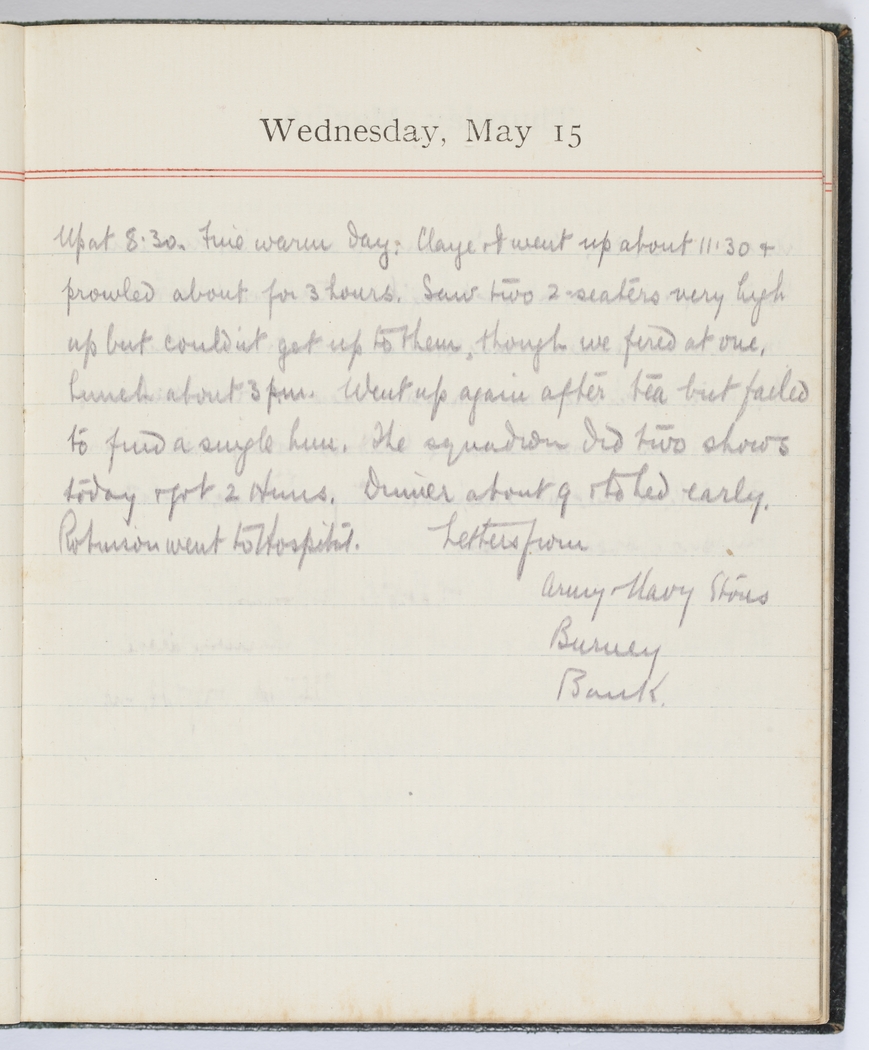 Wednesday, May 15
Up at 8.30. Fine warm day: Claye & I went up about 11.30 &
prowled about for 3 hours. Saw two 2-seaters very high
up but couldn't get up to them, though we fired at one.
Lunch about 3 pm. Went up again after tea but failed
to find a single hun. The squadron did two shows
today & got 2 Huns. Dinner about 9 & to bed early.
Robinson went to Hospital. Letters from
Army & Navy Stores
Burney
Bank.